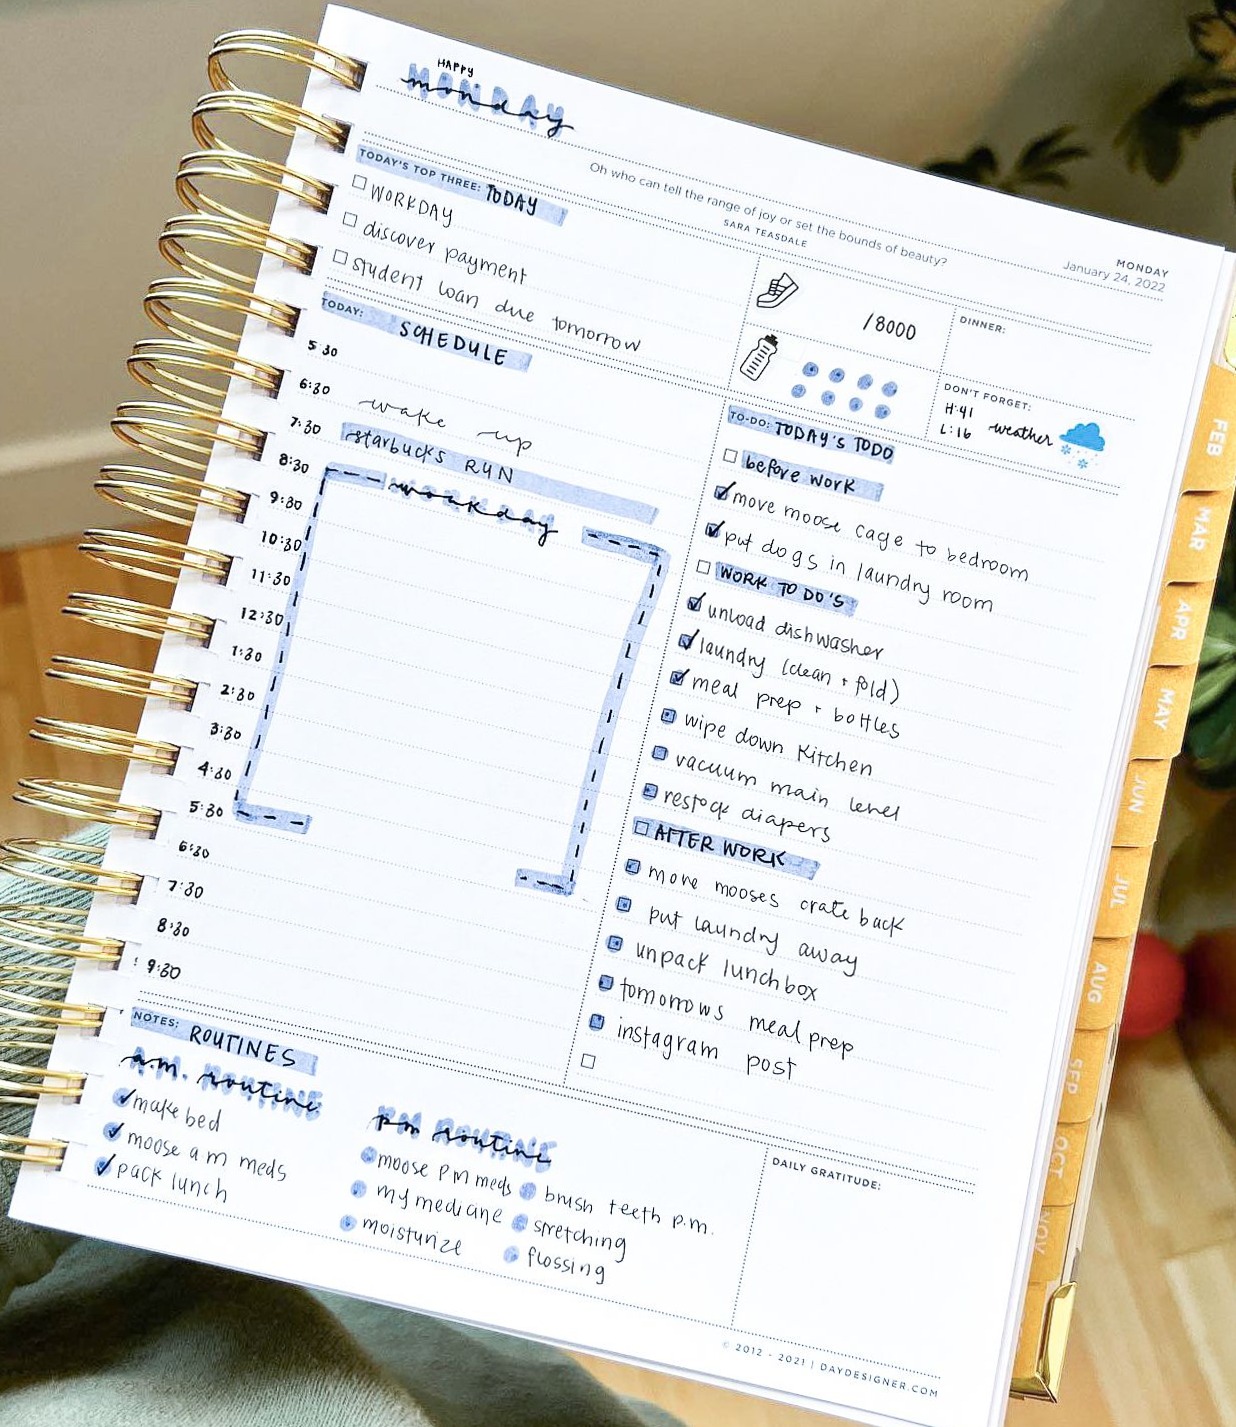 HAPPY
MONDAY
monday
Oh who can tell the range of joy or set the bounds of beauty?
SARA TEASDALE
MONDAY
January 24, 2022
TODAY'S TOP THREE: TODAY
WORKDAY
discover payment
student loan due tomorrow
/8000
DINNER:
DON'T FORGET:
H:41
L:16 weather
TODAY: SCHEDULE
5:30
6:30
wake up
7:30 starbucks RUN
8:30
workday
9:30
10:30
11:30
12:30
1:30
2:30
3:30
4:30
5:30
6:30
7:30
8:30
9:30
TO-DO: TODAY'S TODO
before work
move moose cage to bedroom
put dogs in laundry room
WORK TO DO'S
unload dishwasher
laundry (clean + fold)
meal prep + bottles
wipe down kitchen
vacuum main level
restock diapers
AFTER WORK
move mooses crate back
put laundry away
unpack lunchbox
tomorrows meal prep
instagram post
NOTES: ROUTINES
A.M. ROUTINE
a.m. routine
make bed
moose am meds
pack lunch
PM ROUTINE
pm routine
moose PM meds
my medicine
moisturize
brush teeth p.m.
stretching
flossing
DAILY GRATITUDE:
© 2012 - 2021 | DAYDESIGNER.COM
FEB
MAR
APR
MAY
JUN
JUL
AUG
SEP
OCT
NOV